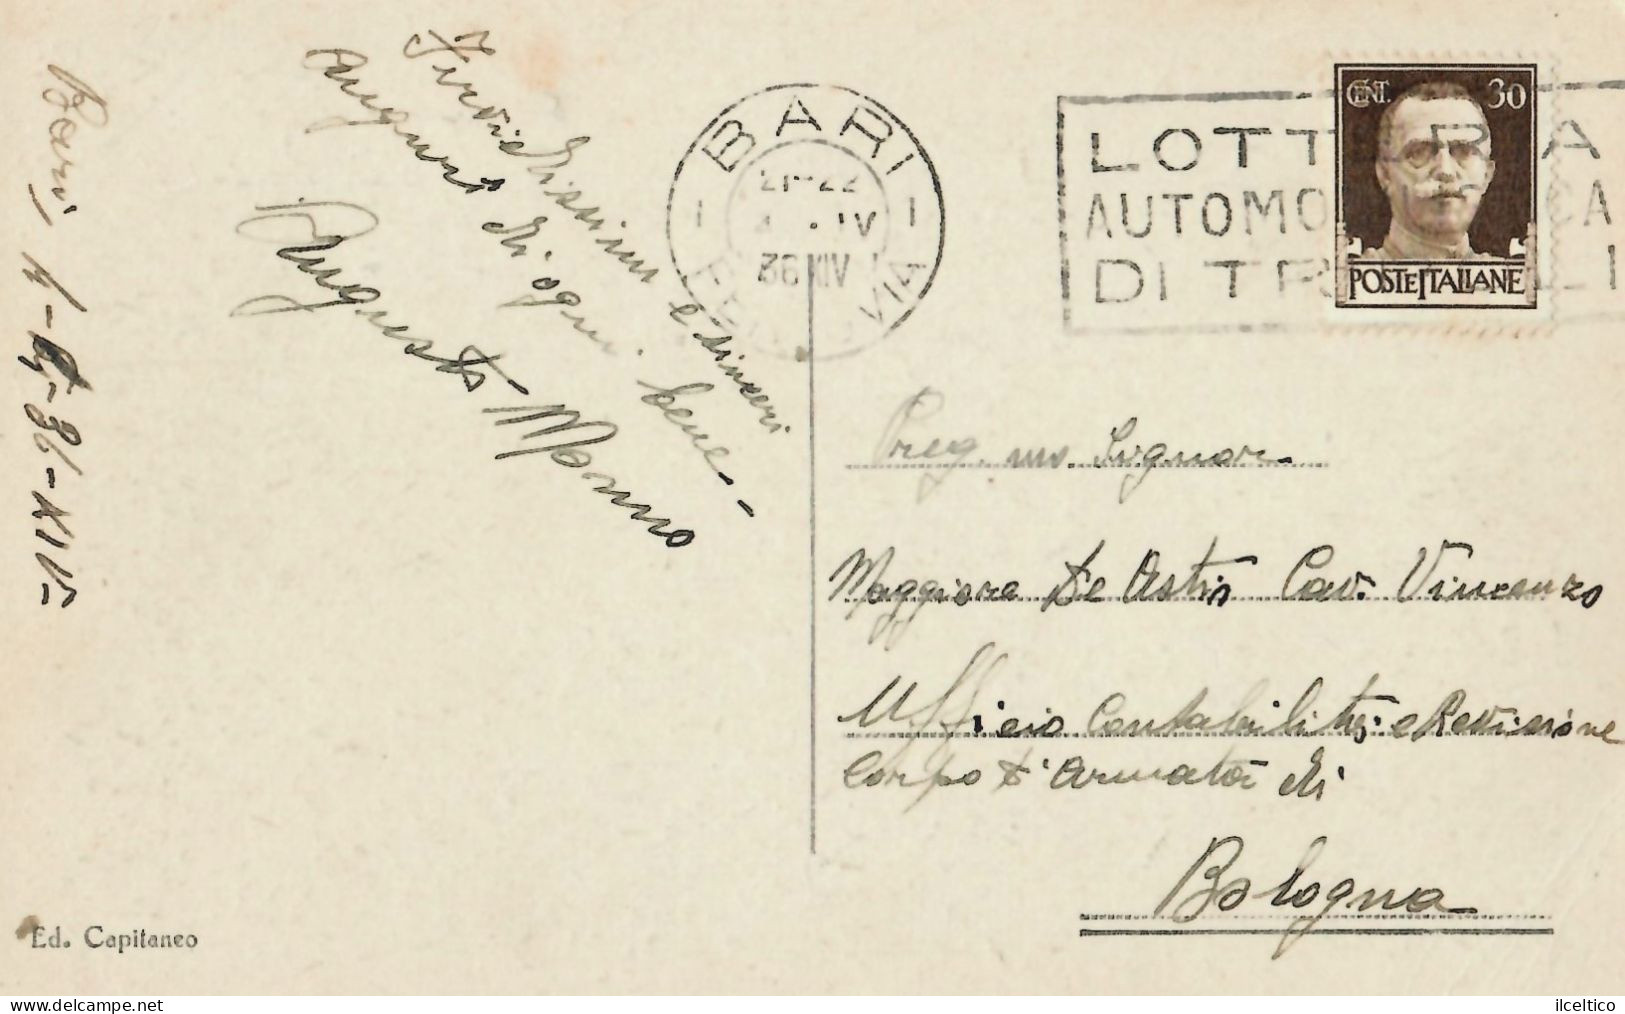 Bari, 4-4-36-XIV-
Fervidissimi e sinceri
auguri di ogni bene -
Augusto Manno
BARI
21-22
IV
36 XIV
FERROVIA
CENT. 30
POSTE ITALIANE
LOTTERIA
AUTOMOBILISTICA
DI TRIPOLI
Preg.mo Signor
Maggiore De Astis Cav. Vincenzo
Ufficio Contabilità e Revisione
Corpo d'Armata di
Bologna
Ed. Capitaneo
www.delcampe.net
ilceltico